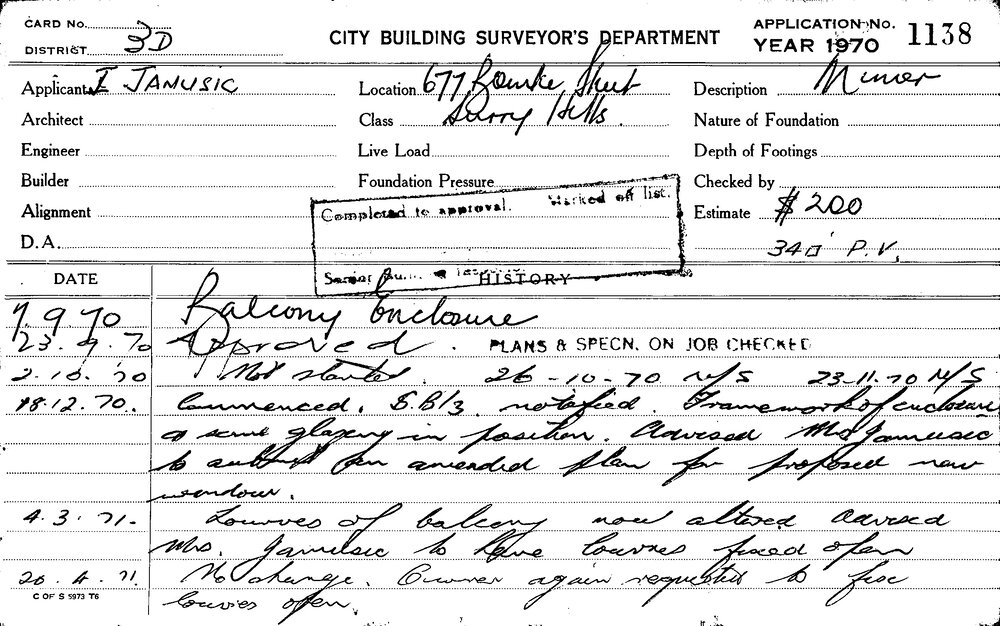 CARD No.
DISTRICT 3D
CITY BUILDING SURVEYOR'S DEPARTMENT
APPLICATION No. 1138
YEAR 1970
Applicant I JANUSIC
Location 677 Bourke Street
Description Minor
Architect
Class Surry Hills.
Nature of Foundation
Engineer
Live Load
Depth of Footings
Builder
Foundation Pressure
Checked by
Alignment
Completed to approval. Marked off list.
Estimate $200
D.A.
340' P.V.
Senior
DATE
HISTORY
7.9.70 Balcony Enclosure
23.9.70 Approved. PLANS & SPECN. ON JOB CHECKED
2.10.70 Not started. 26-10-70 N/S 23-11-70 N/S
18.12.70. Commenced. S.B/3 notified. Framework of enclosure
& some glazing in position. Advised Mrs Janusic
to submit an amended plan for proposed new
window.
4.3.71. Louvres of balcony now altered Advised
Mrs. Janusic to have louvres fixed open
20.4.71 No change. Owner again requested to fix
louvres open.
C OF S 5973 T6